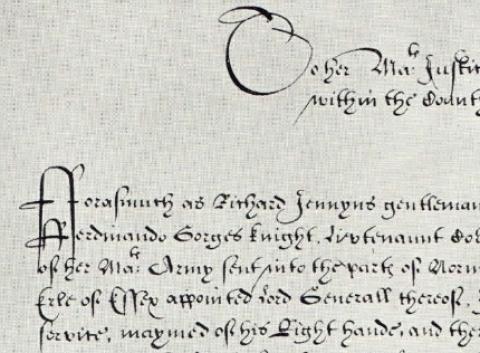 To her Ma^ts Justic
within the Count
Forasmuch as Richard Jennyns gentleman
Ferdinando Gorges knight, Livtenaunt Co
of her Ma^ts Army sent into the partes of Norm
Erle of Essex appointed Lord Generall thereof,
service, maymed of his Right hande, and the